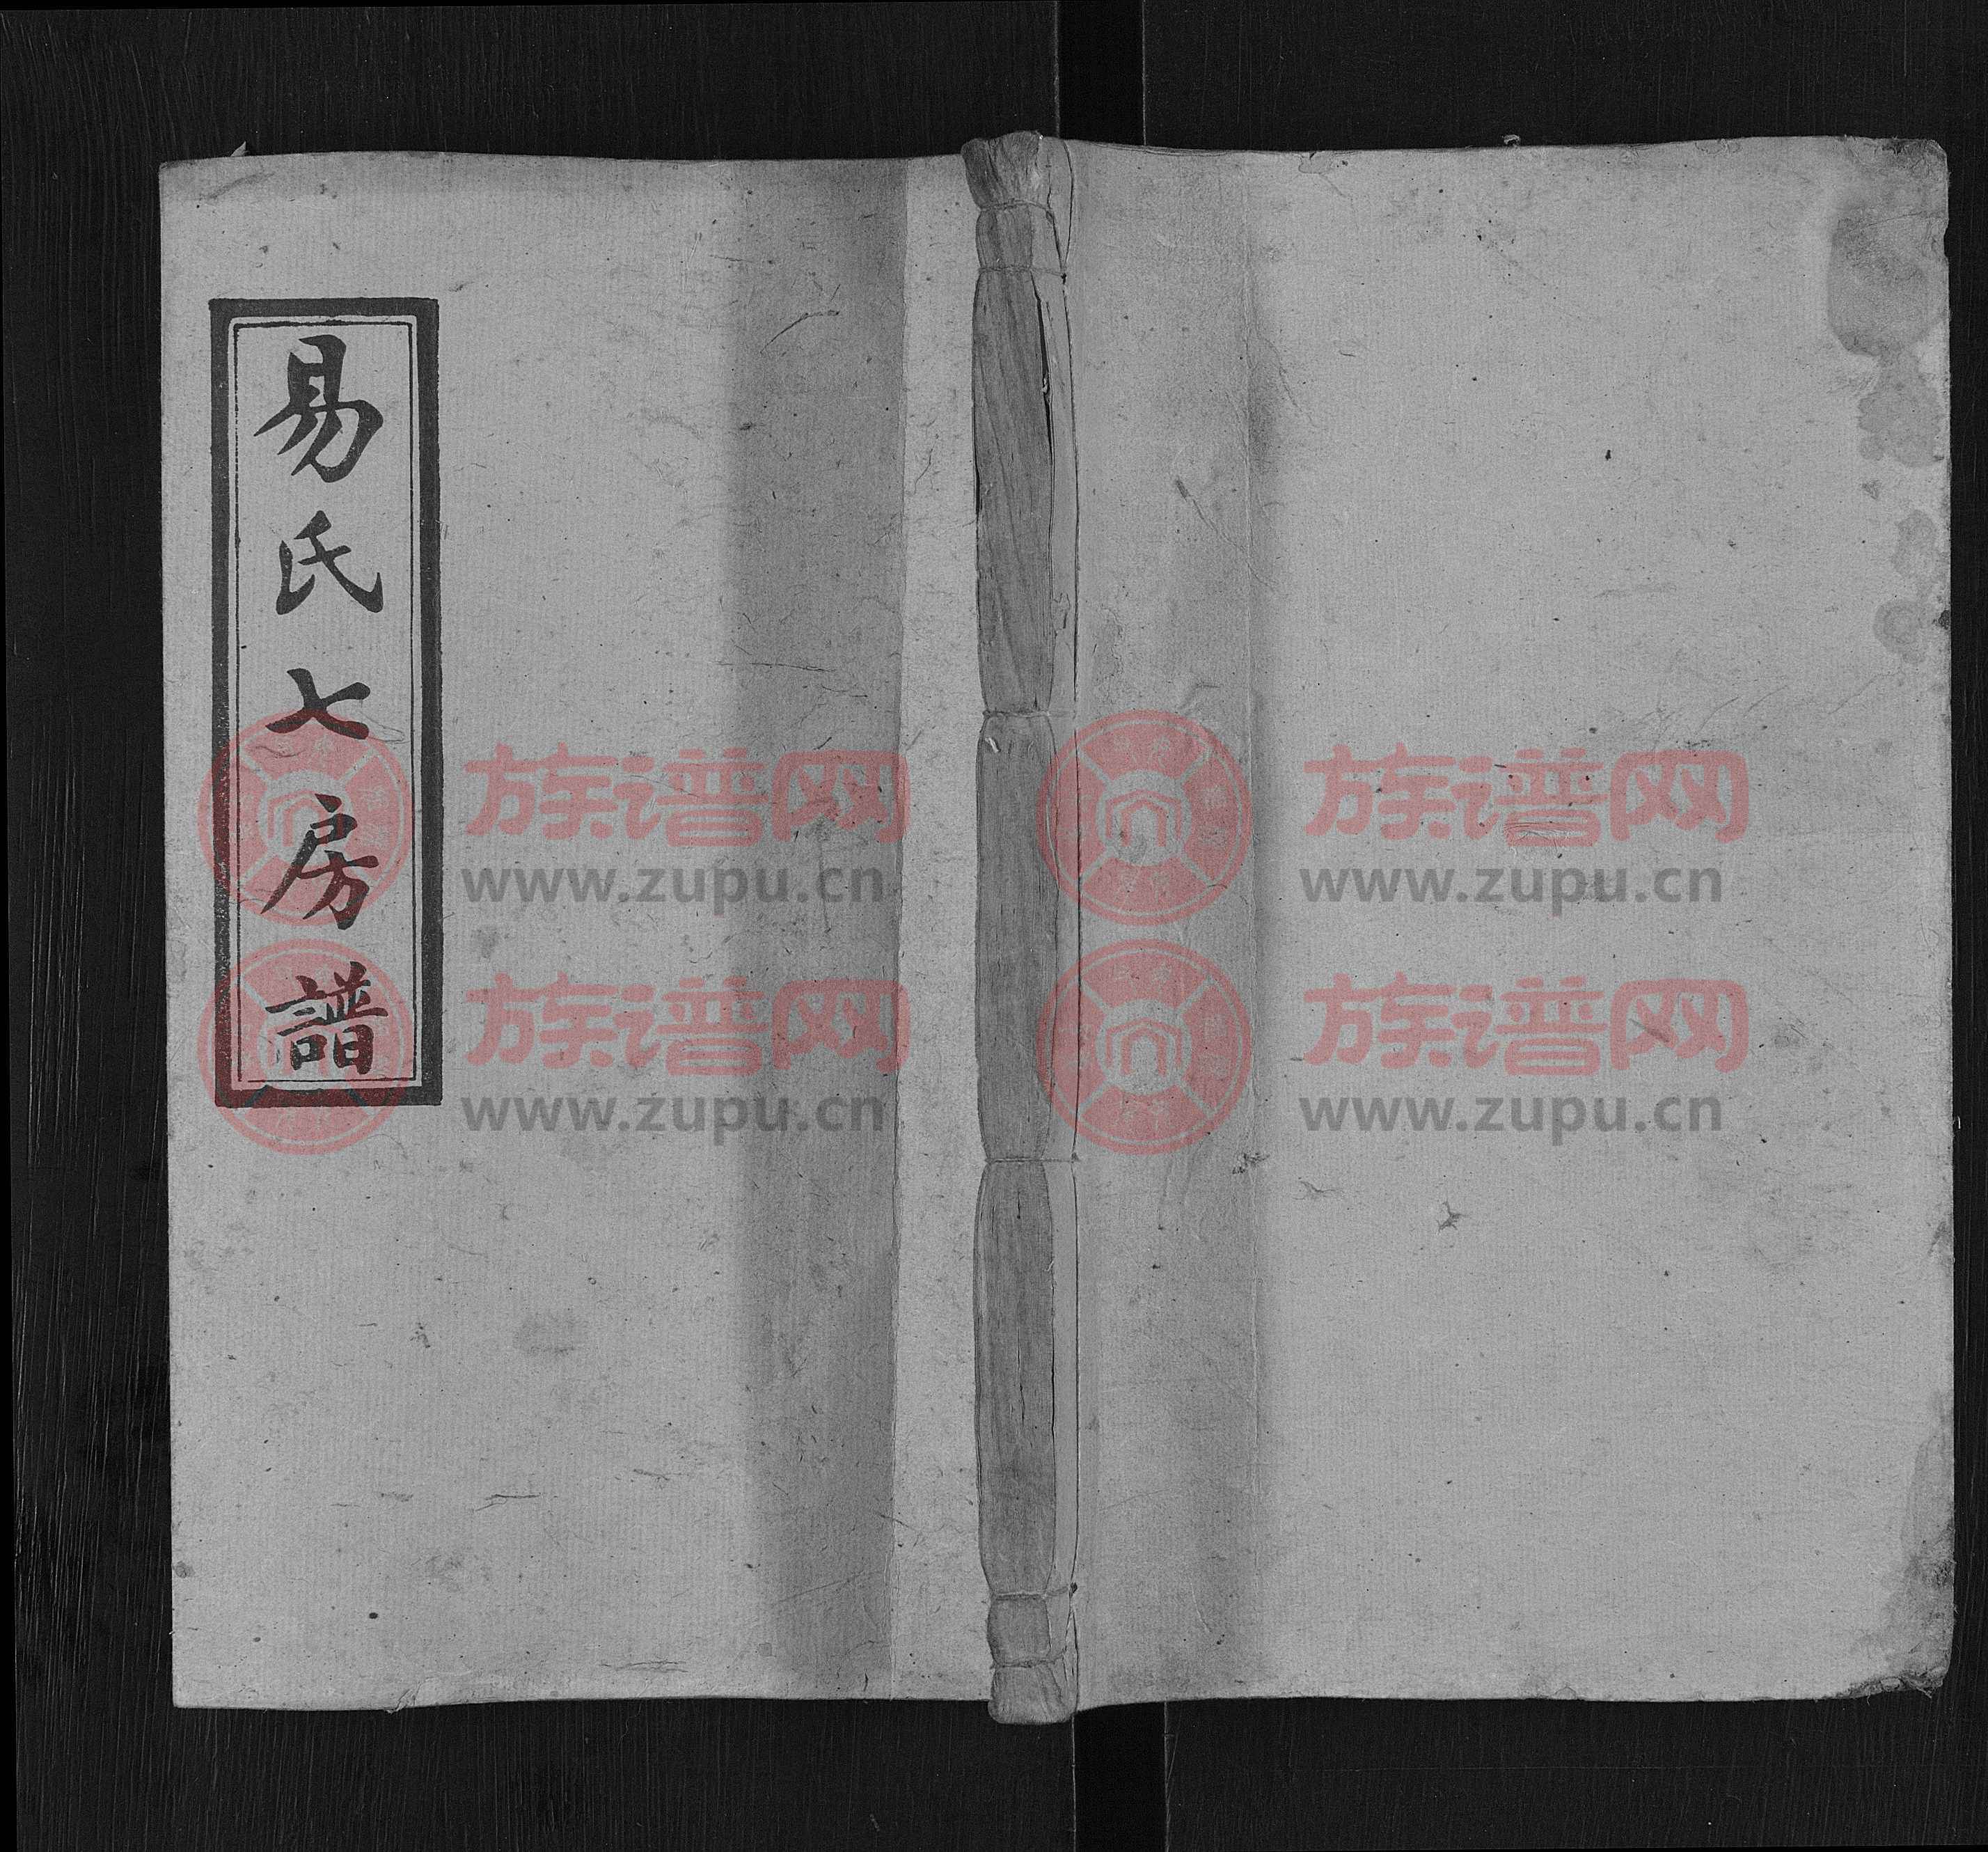 易氏七房譜
族谱网 族谱网
www.zupu.cn www.zupu.cn
族谱网 族谱网
www.zupu.cn www.zupu.cn